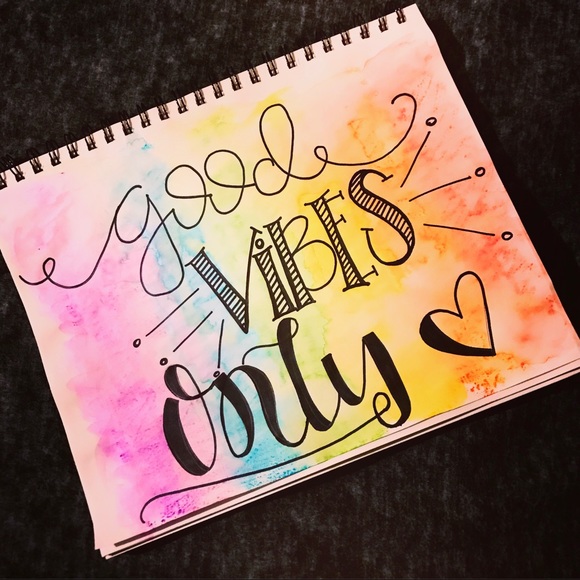 good
VIBES
Only